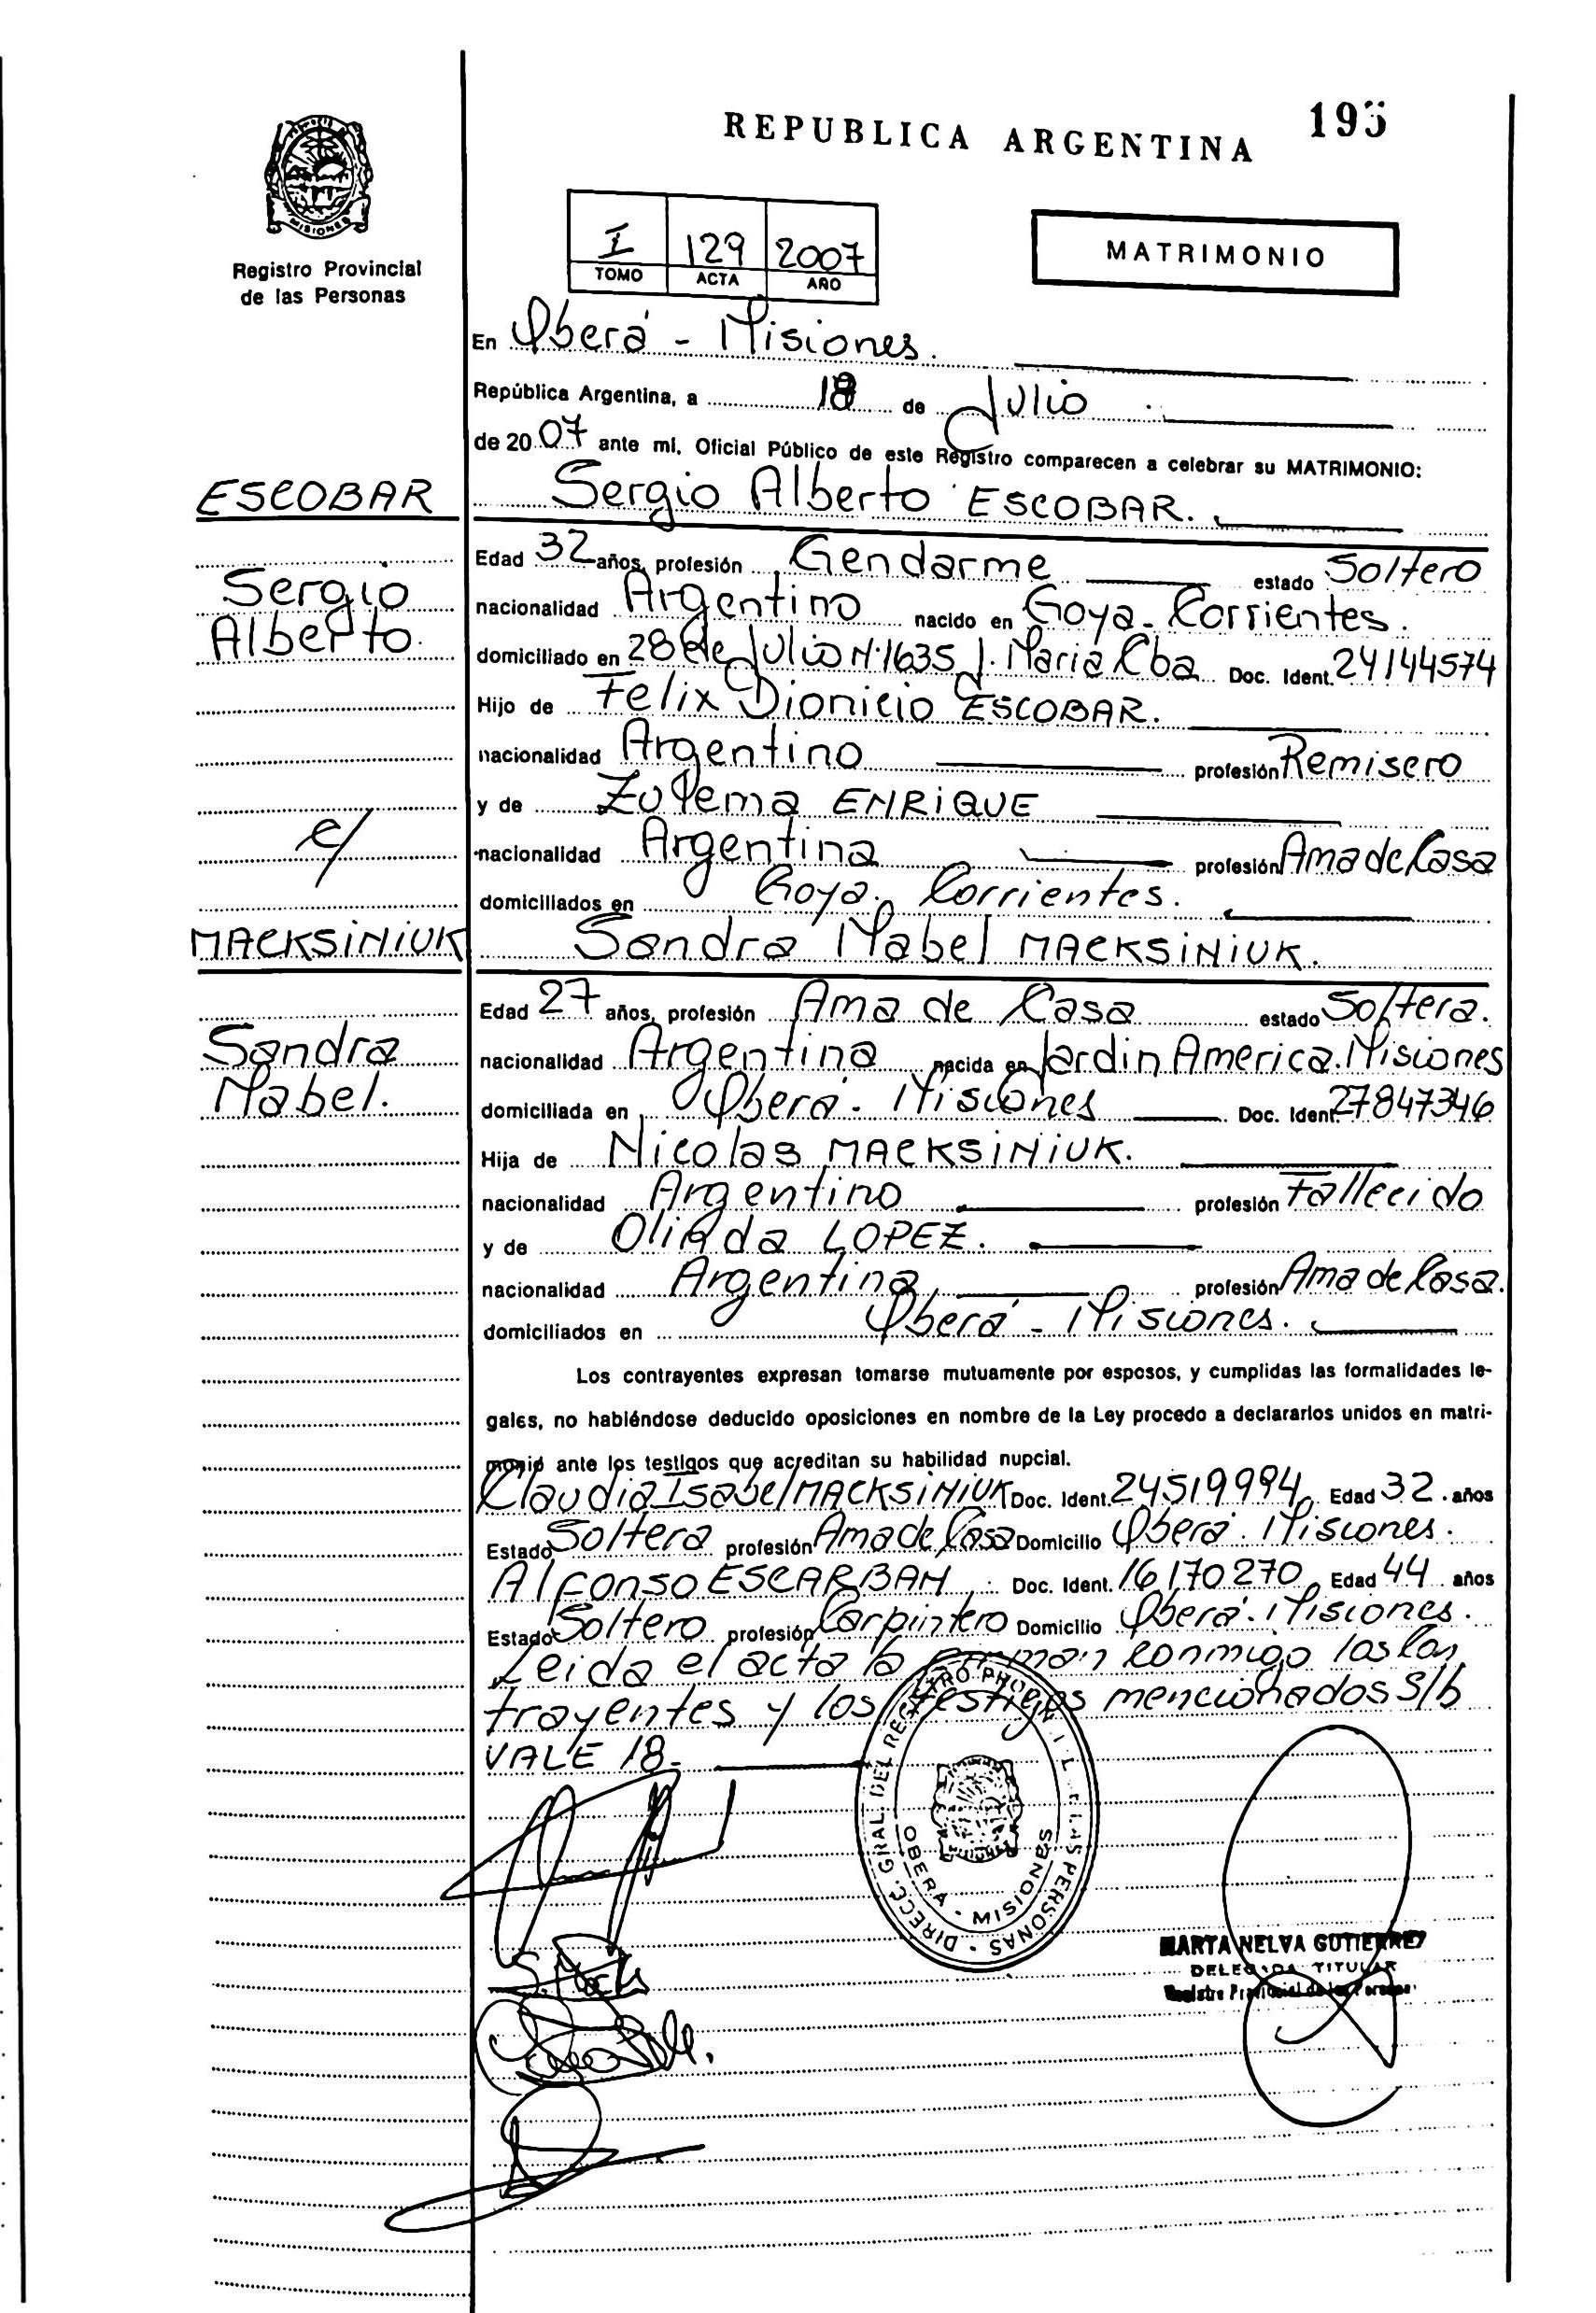 REPUBLICA ARGENTINA
MISIONES
Registro Provincial
de las Personas
I 129 2007
TOMO ACTA AÑO
MATRIMONIO
En Oberá - Misiones.
República Argentina, a 18 de Julio
de 2007 ante mi, Oficial Público de este Registro comparecen a celebrar su MATRIMONIO:
ESCOBAR
Sergio Alberto ESCOBAR.
Sergio
Alberto.
Edad 32 años, profesión Gendarme estado Soltero
nacionalidad Argentino nacido en Goya - Corrientes.
domiciliado en 28 de Julio N·1635 J. Maria Cba Doc. Ident. 24144574
Hijo de Felix Dionicio ESCOBAR.
nacionalidad Argentino profesión Remisero
y de Zulema ENRIQUE
c/
nacionalidad Argentina profesión Ama de Casa
domiciliados en Goya. Corrientes.
MACKSINIUK
Sandra Mabel MACKSINIUK.
Sandra
Mabel.
Edad 27 años, profesión Ama de Casa estado Soltera.
nacionalidad Argentina nacida en Jardin America. Misiones
domiciliada en Oberá - Misiones Doc. Ident. 27847346
Hija de Nicolas MACKSINIUK.
nacionalidad Argentino profesión Fallecido
y de LOPEZ.
nacionalidad Argentina profesión Ama de Casa.
domiciliados en Oberá - Misiones.
Los contrayentes expresan tomarse mutuamente por esposos, y cumplidas las formalidades le-
gales, no habiéndose deducido oposiciones en nombre de la Ley procedo a declararlos unidos en matri-
monio ante los testigos que acreditan su habilidad nupcial.
Claudia Isabel MACKSINIUK Doc. Ident. 24519994 Edad 32 años
Estado Soltera profesión Ama de Casa Domicilio Oberá. Misiones.
Alfonso ESCARBAN Doc. Ident. 16170270 Edad 44 años
Estado Soltero profesión Carpintero Domicilio Oberá. Misiones.
Leida el acta la firman conmigo los Con
trayentes y los testigos mencionados S/b
VALE 18.-
DIRECC. GRAL. DEL REGISTRO PROVINCIAL DE LAS PERSONAS
OBERA - MISIONES
MARTA NELVA GUTIERREZ
DELEGADA TITULAR
Registro Provincial de las Personas